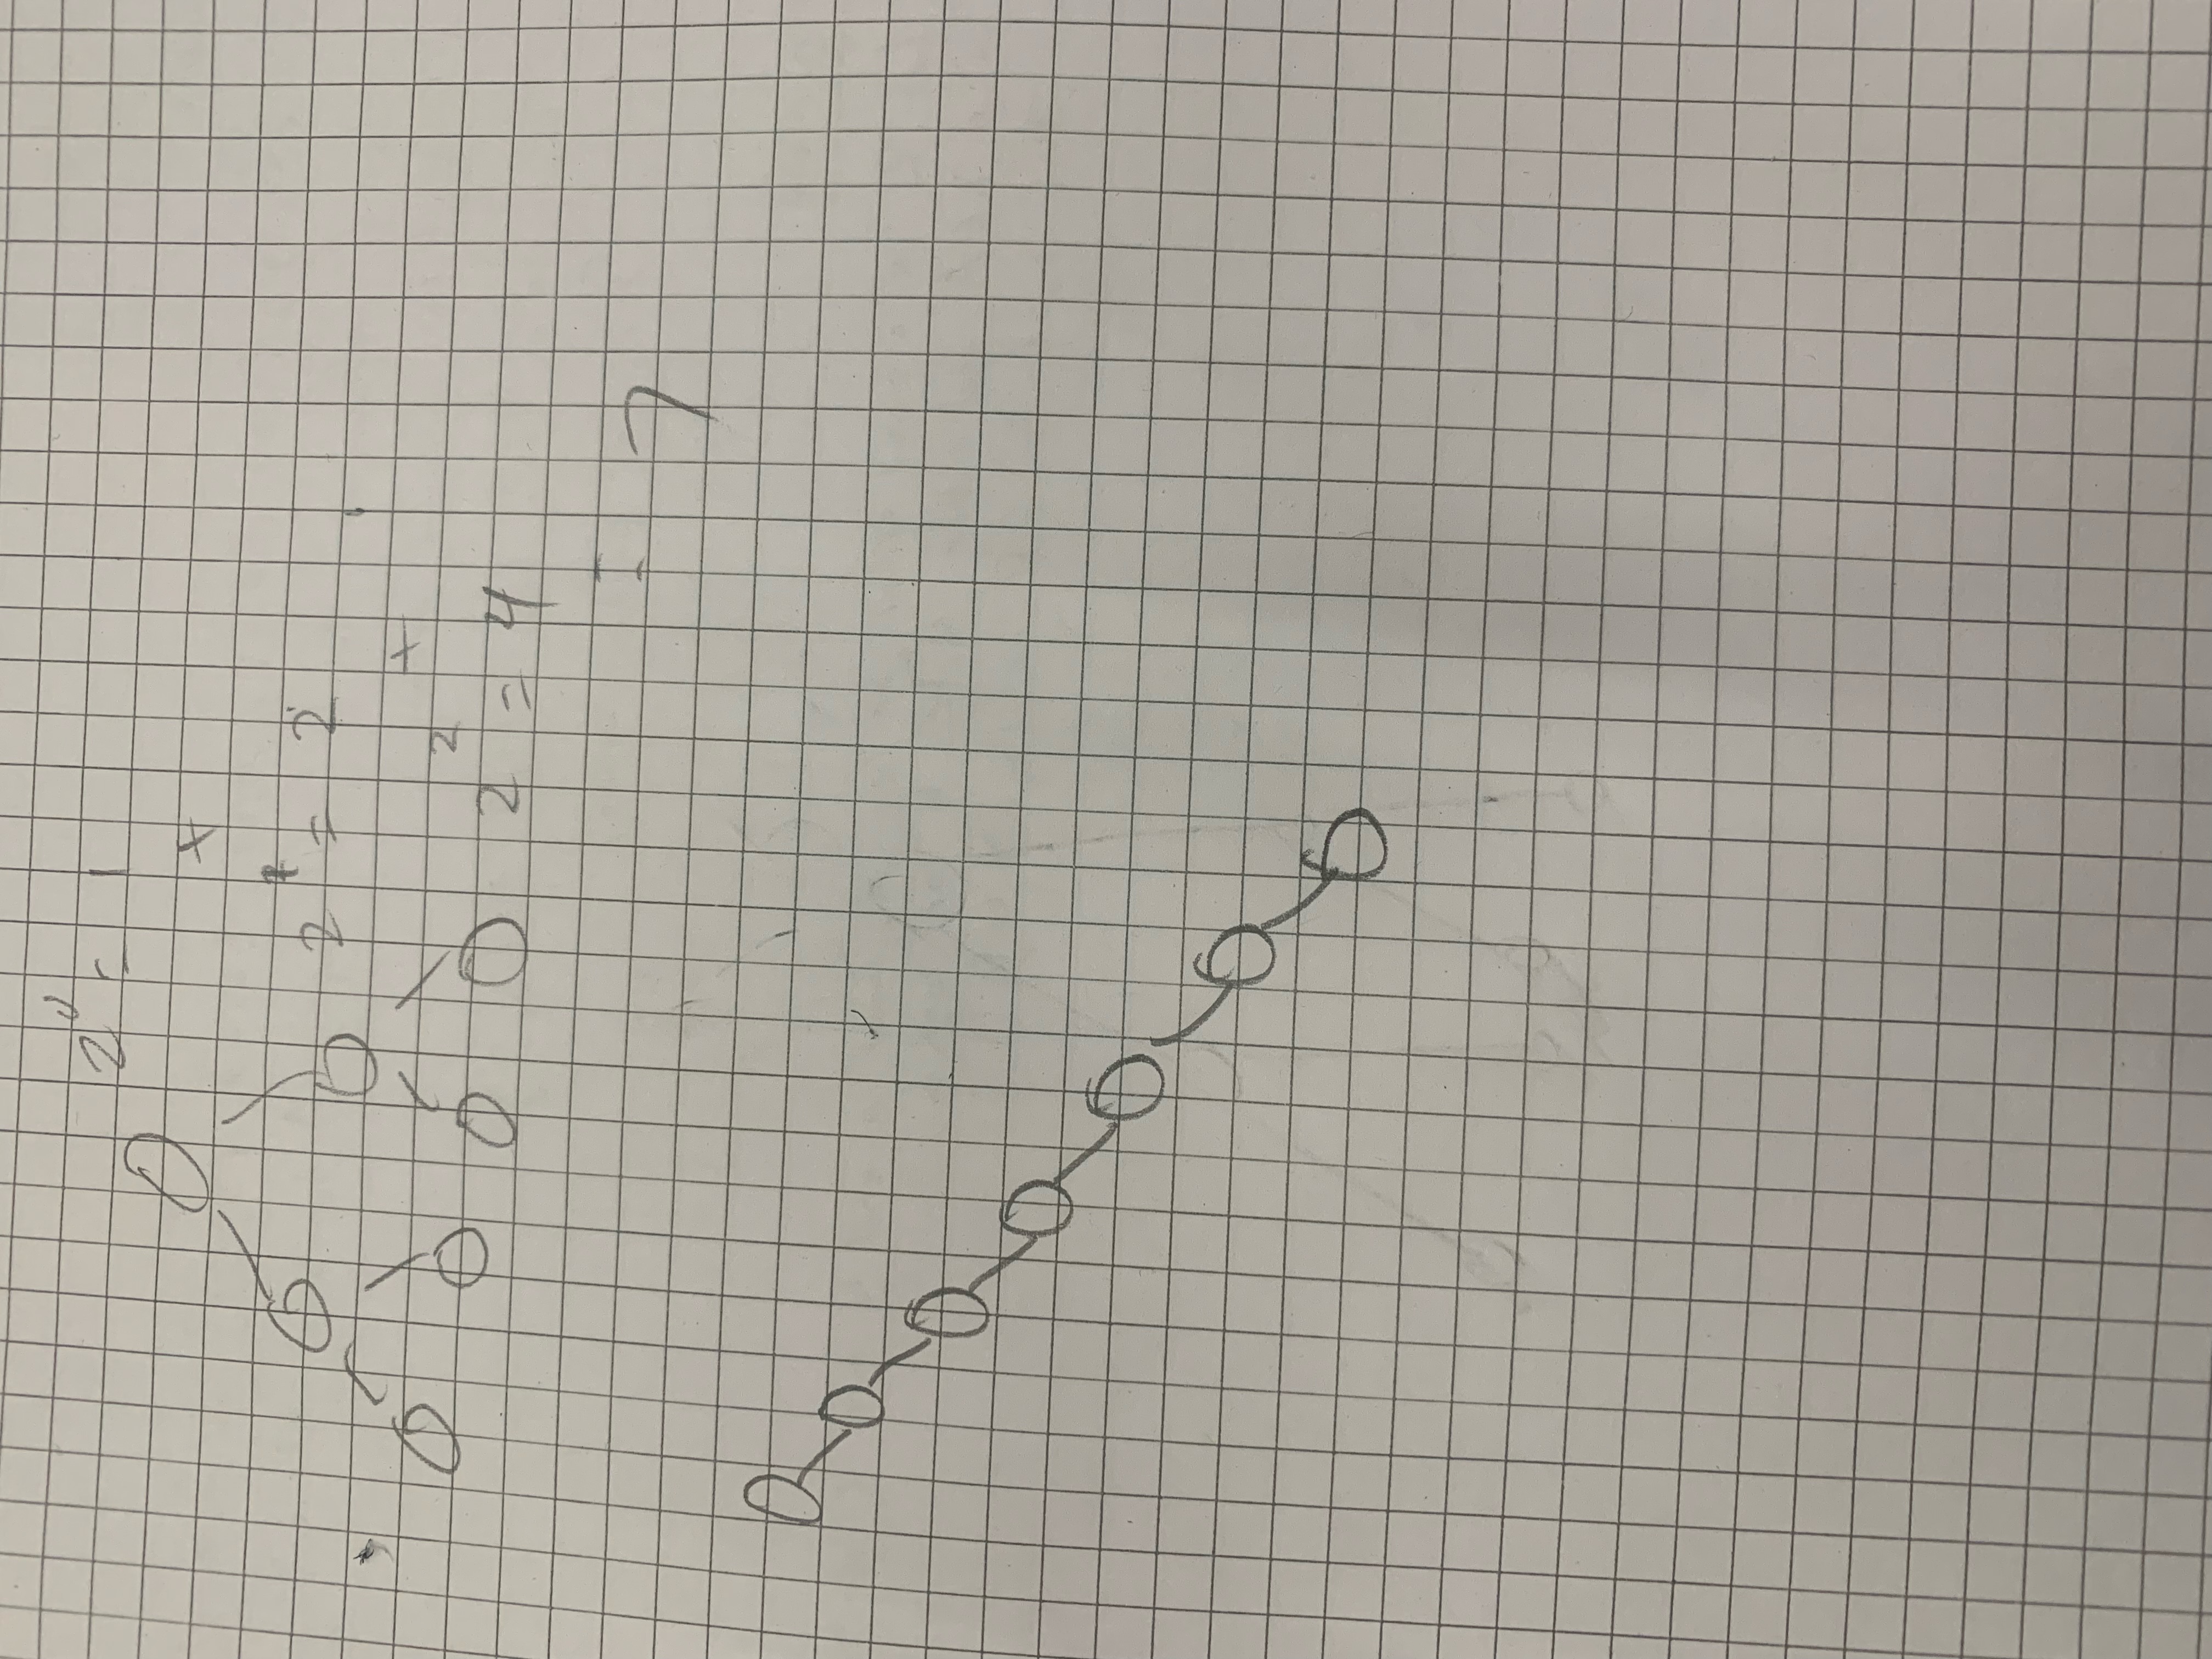 2⁰ = 1
+
2¹ = 2
+
2² = 4
= 7